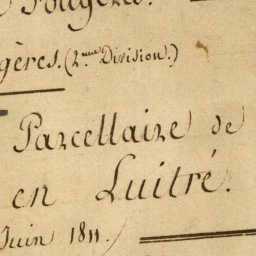 Fougères.
gères. (2.me Division.)
Parcellaire de
en Luitré.
Juin 1811.